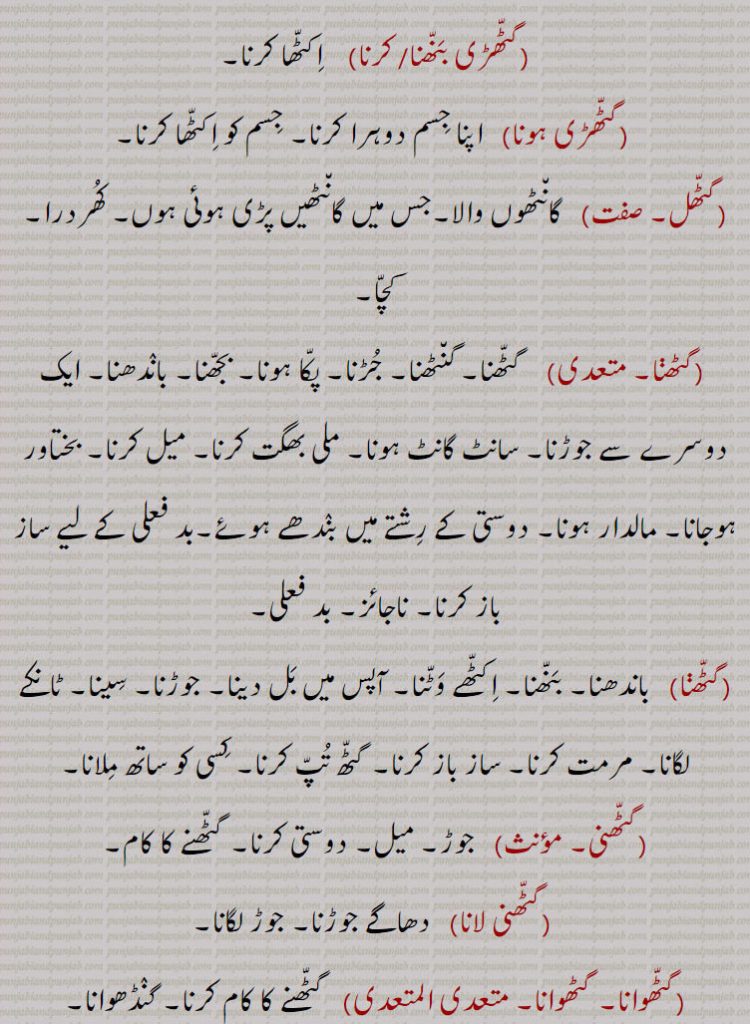 (گٹّھڑی بنّھنا/ کرنا) اِکٹّھا کرنا۔
(گٹّھڑی ہونا) اپنا جِسم دوہرا کرنا۔ جِسم کو اِکٹّھا کرنا۔
(گٹّھل۔ صفت) گانْٹھوں والا۔ جس میں گانْٹھیں پڑی ہوئی ہوں۔ کُھردرا۔
کچّا۔
(گٹھنْا۔ متعدی) گٹّھنا۔ گنْٹھنا۔ جُڑنا۔ پکّا ہونا۔ بجّھنا۔ بانْدھنا۔ ایک
دوسرے سے جوڑنا۔ سانٹ گانٹ ہونا۔ ملی بھگت کرنا۔ میل کرنا۔ بختاور
ہوجانا۔ مالدار ہونا۔ دوستی کے رِشتے میں بنْدھے ہوئے۔ بد فعلی کے لیے ساز
باز کرنا۔ ناجائز۔ بد فعلی۔
(گٹّھنْا) باندھنا۔ بنّھنا۔ اِکٹّھے وَٹنا۔ آپس میں بَل دینا۔ جوڑنا۔ سِینا۔ ٹانکے
لگانا۔ مرمت کرنا۔ ساز باز کرنا۔ گٹّھ تُپّ کرنا۔ کِسی کو ساتھ مِلانا۔
(گٹّھنی۔ مؤنث) جوڑ۔ میل۔ دوستی کرنا۔ گٹّھنے کا کام۔
(گٹّھنی لانا) دھاگے جوڑنا۔ جوڑ لگانا۔
(گٹّھوانا۔ گٹھوانا۔ متعدی المتعدی) گٹّھنے کا کام کرنا۔ گنْڈھوانا۔